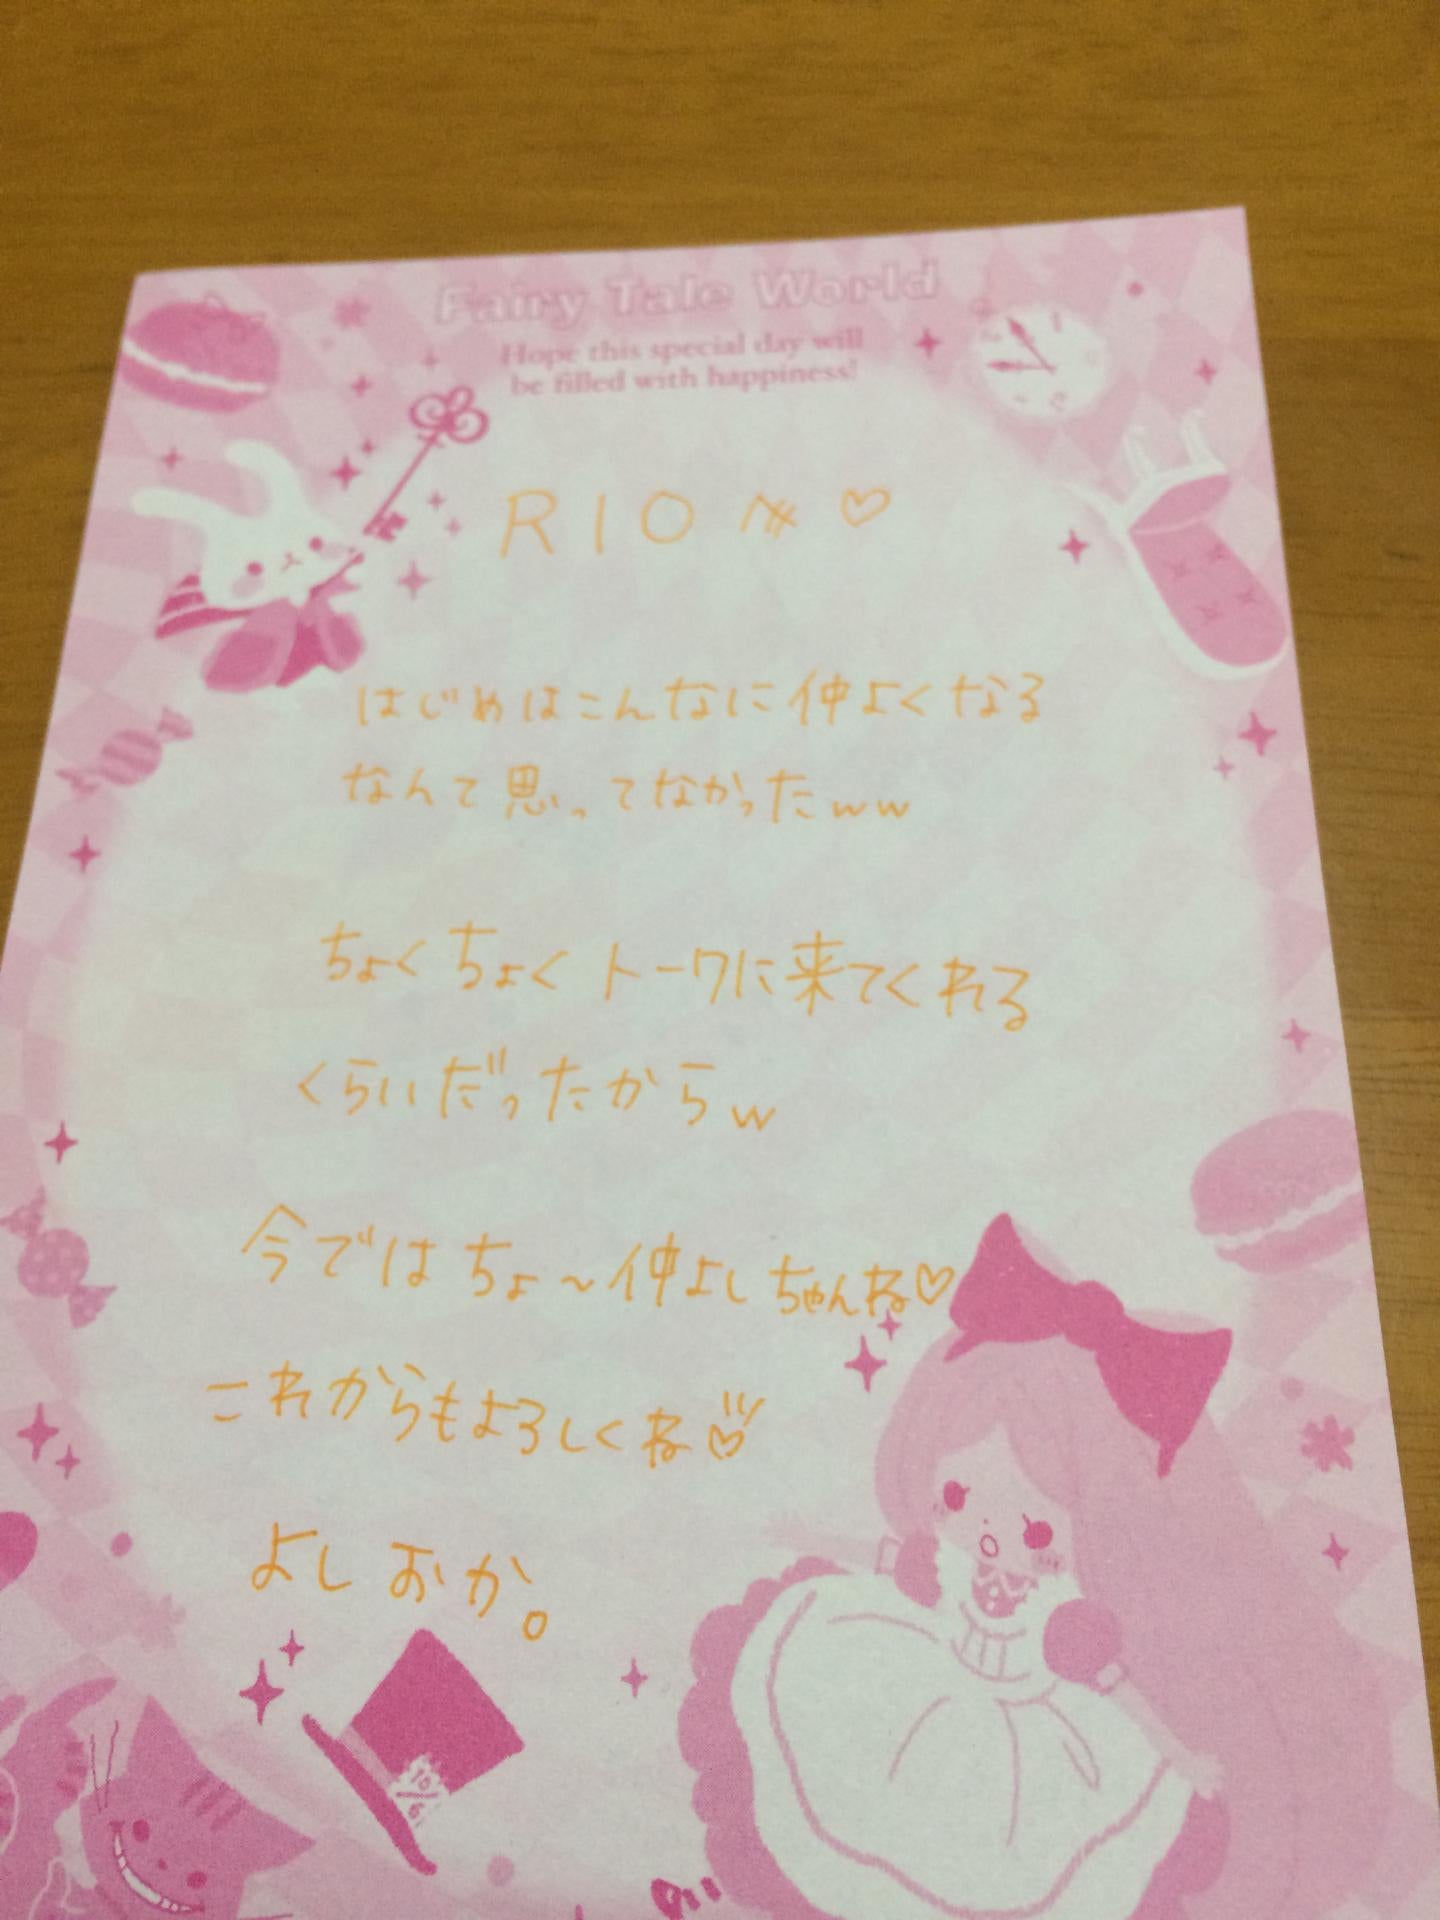 Fairy Tale World
Hope this special day will
be filled with happiness!
RIO へ ♡
はじめはこんなに仲よくなる
なんて思ってなかったww
ちょくちょくトークに来てくれる
くらいだったからw
今ではちょ～仲よしちゃんね♡
これからもよろしくね♡
よしおか。
10/6